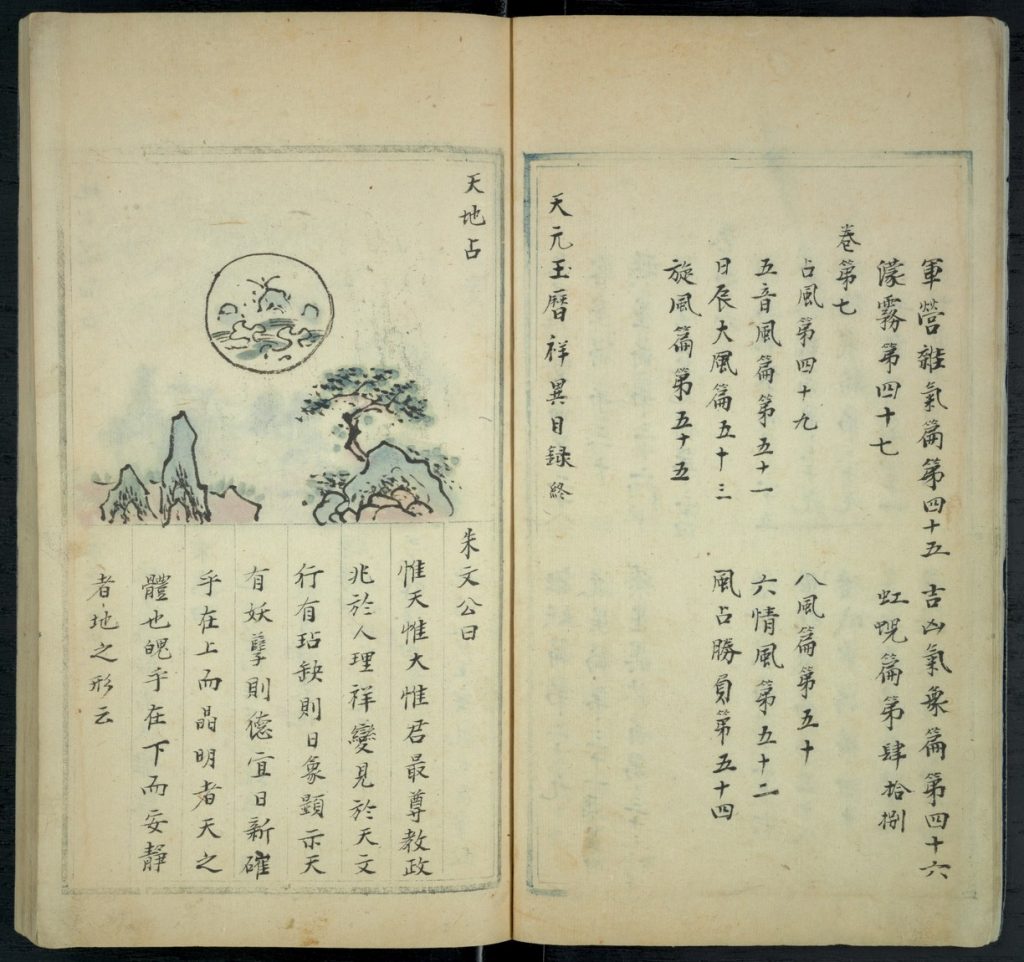 軍營雜氣篇第四十五
吉凶氣象篇第四十六
濛霧第四十七
虹蜺篇第肆拾捌
卷第七
占風第四十九
八風篇第五十
五音風篇第五十一
六情風第五十二
日辰大風篇五十三
風占勝負第五十四
旋風篇第五十五
天元玉曆祥異目録終
天地占
朱文公曰
惟天惟大惟君最尊教政
兆於人理祥變見於天文
行有玷缺則日象顕示天
有妖孽則德宜日新確
乎在上而晶明者天之
體也嵬乎在下而安靜
者地之形云